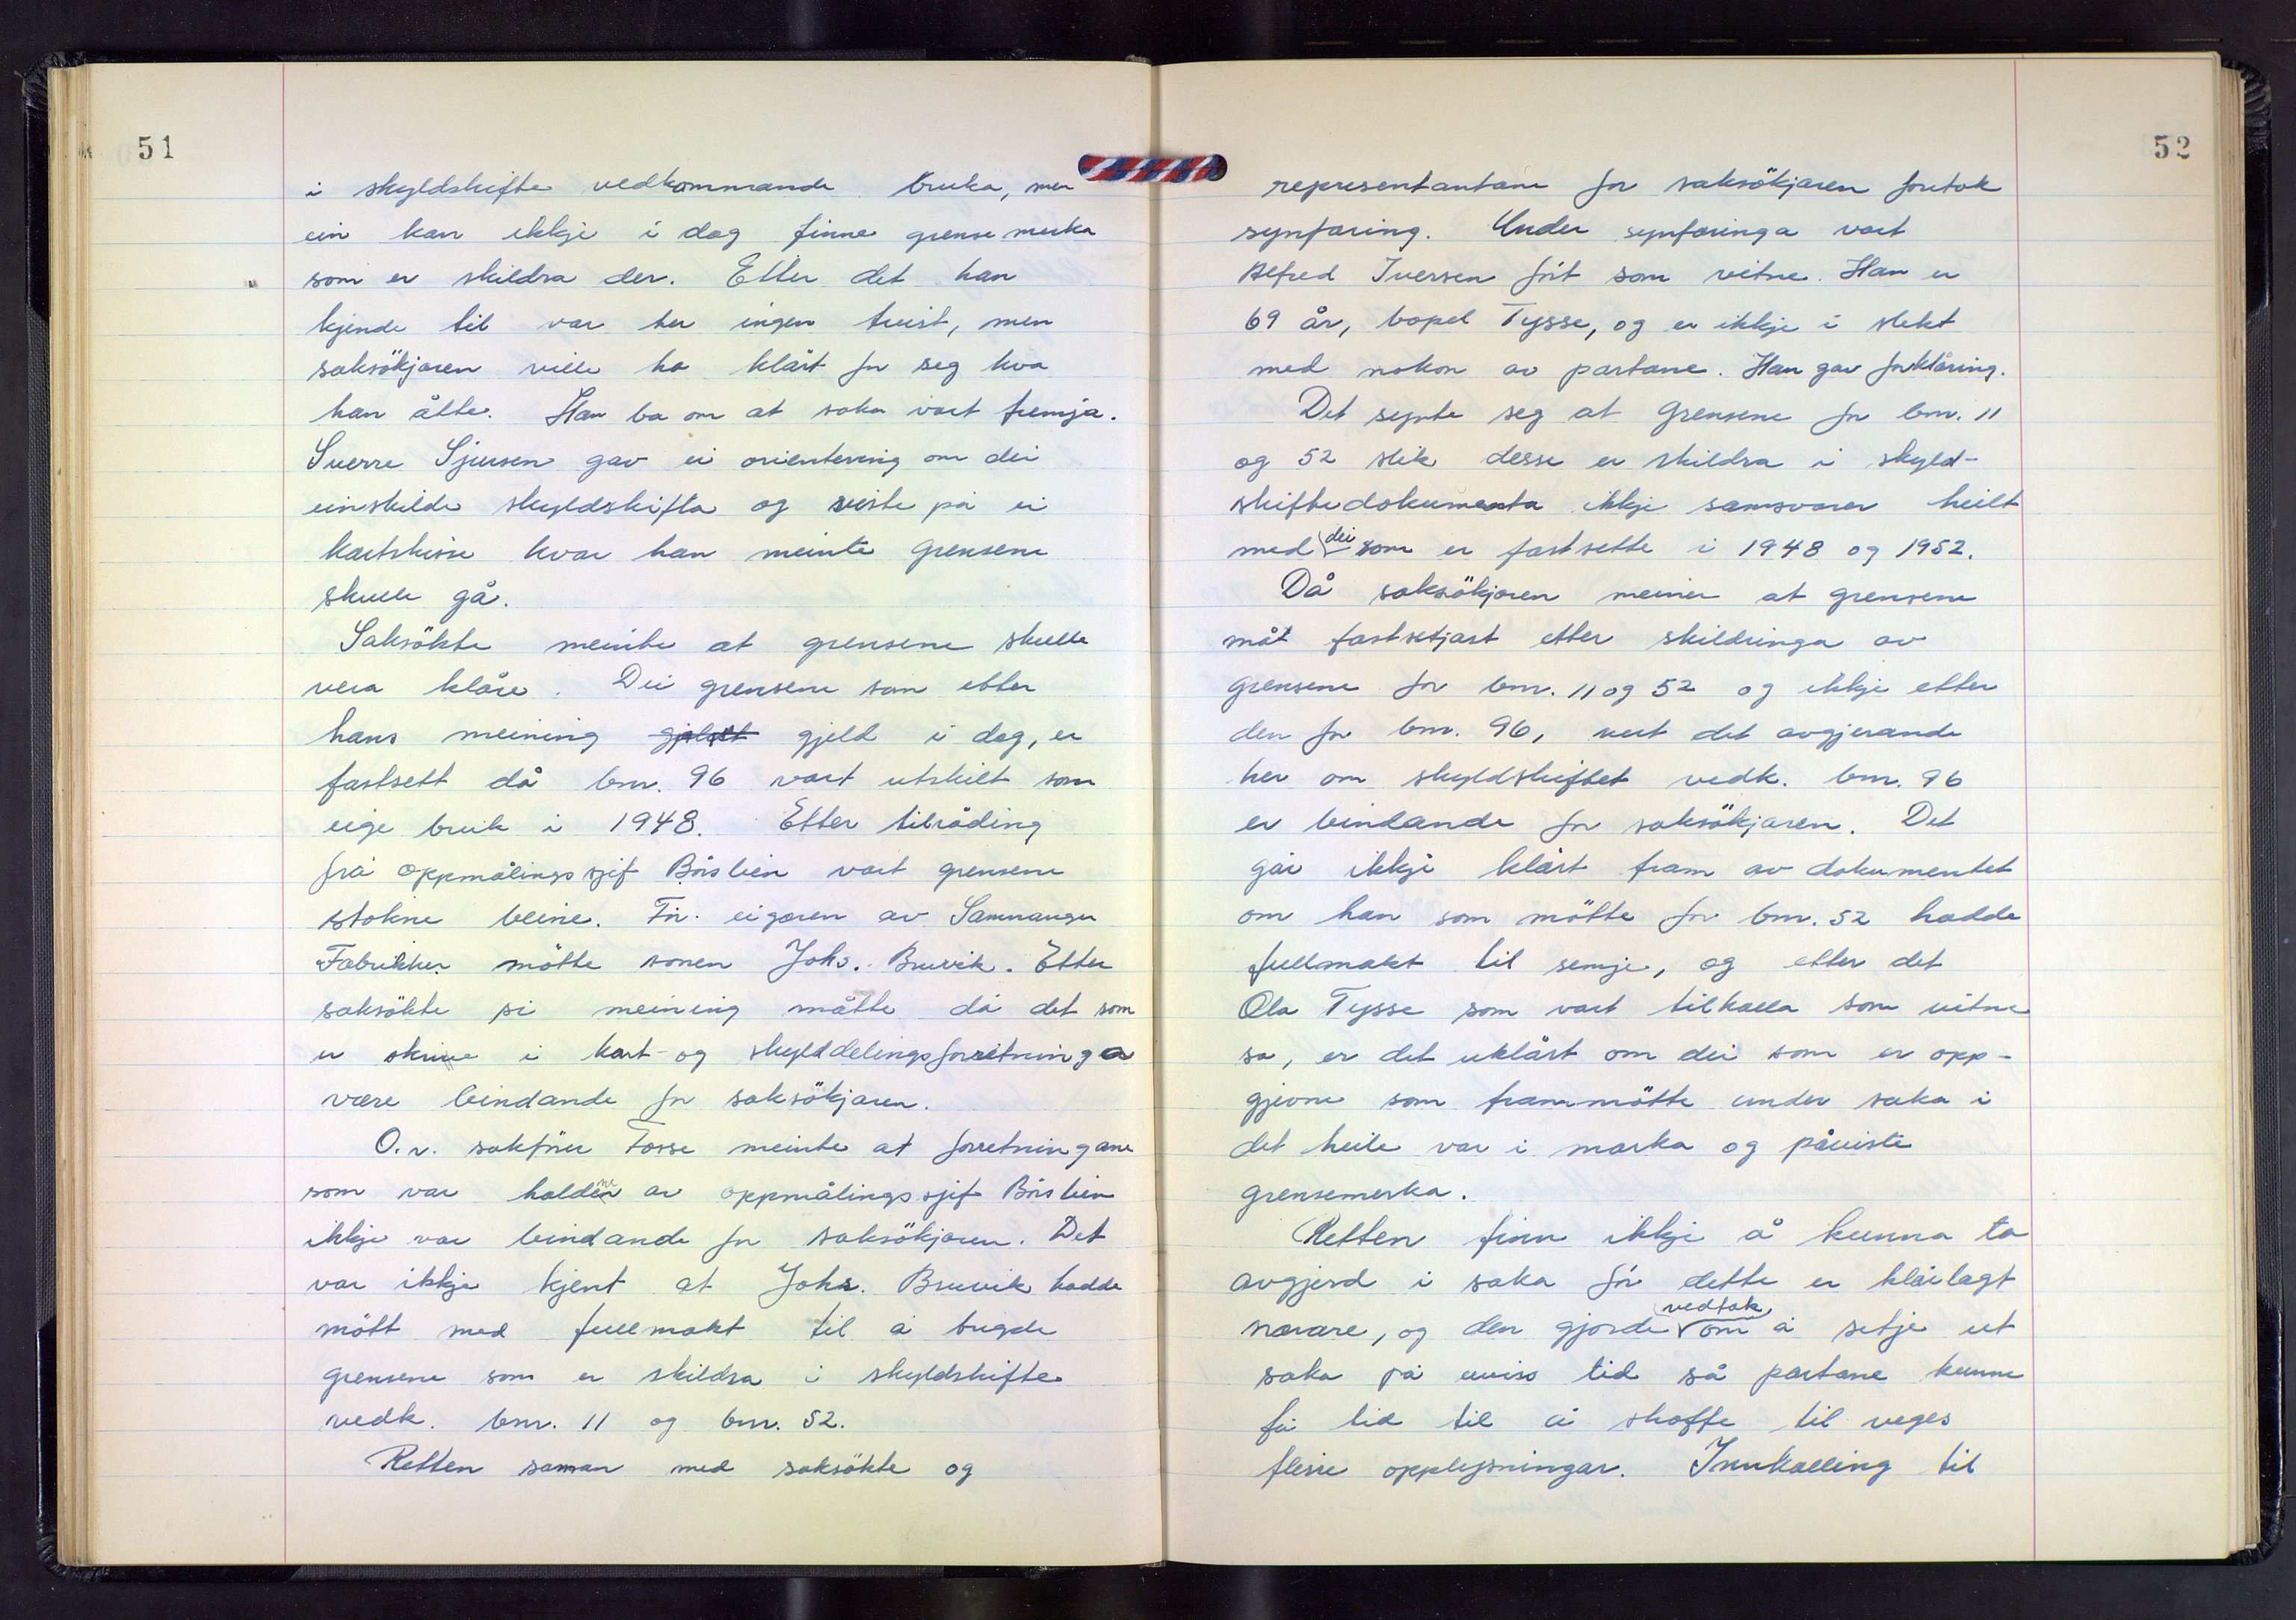 51
i skyldskifte vedkommande bruka, men
ein kan ikkje i dag finne grensemerka
som er skildra der. Etter det han
kjende til var her ingen tvist, men
saksökjaren ville ha klårt for seg kva
han åtte. Han ba om at saka vart fremja.
Sverre Sjursen gav ei orientering om dei
einskilde skyldskifta og viste på ei
kartskisse kvar han meinte grensene
skulle gå.
Saksökte meinte at grensene skulle
vera klåre. Dei grensene som etter
hans meining gjeld i dag, er
fastsett då bnr. 96 vart utskilt som
eige bruk i 1948. Etter tilråding
frå oppmålingssjef Börslien vart grensene
stokne beine. For eigaren av Samnanger
Fabrikker mötte sonen Johs. Bruvik. Etter
saksökte si meining måtte då det som
er skrive i kart- og skylddelingsforretninga
være bindande for saksökjaren.
O.r. sakförer Fosse meinte at forretningane
som var haldne av oppmålingssjef Börslien
ikkje var bindande for saksökjaren. Det
var ikkje kjent at Johs. Bruvik hadde
mött med fullmakt til å brigde
grensene som er skildra i skyldskifte
vedk. bnr. 11 og bnr. 52.
Retten saman med saksökte og
52
representantane for saksökjaren foretok
synfaring. Under synfaringa vart
Alfred Iversen fört som vitne. Han er
69 år, bopel Tysse, og er ikkje i slekt
med nokon av partane. Han gav forklåring.
Det synte seg at grensene for bnr. 11
og 52 slik desse er skildra i skyld-
skiftedokumenta ikkje samsvarer heilt
med dei som er fastsette i 1948 og 1952.
Då saksökjaren meiner at grensene
måt fastsetjast etter skildringa av
grensene for bnr. 11 og 52 og ikkje etter
den for bnr. 96, vert det avgjerande
her om skyldskiftet vedk. bnr. 96
er bindande for saksökjaren. Det
går ikkje klårt fram av dokumentet
om han som mötte for bnr. 52 hadde
fullmakt til semje, og etter det
Ola Tysse som vart tilkalla som vitne
sa, er det uklårt om dei som er opp-
gjevne som frammötte under saka i
det heile var i marka og påviste
grensemerka.
Retten finn ikkje å kunna ta
avgjerd i saka för dette er klårlagt
nærare, og den gjorde vedtak om å setje ut
saka på uviss tid så partane kunne
få tid til å skaffe til veges
fleire opplysningar. Innkalling til